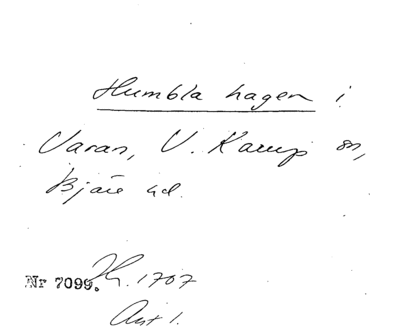 Humbla hagen i
Varan, V. Karup sn,
Bjäre hd.
Nr 7099. Jh. 1707
Akt 1.